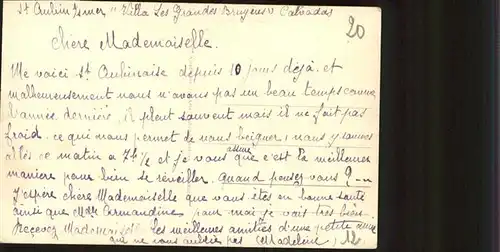 St Aubin s/mer "Villa Les Grandes Bruyères" Calvados
20
Chère Mademoiselle.
Me voici St Aubinaise depuis 10 jours déjà. et
malheureusement nous n'avons pas un beau temps comme
l'année dernière, il pleut souvent mais il ne fait pas
froid. ce qui nous permet de nous baigner, nous y sommes
allés ce matin a 7h½ et je vous assure que c'est la meilleure
manière pour bien se réveiller. Quand pensez vous ? _
J'espère chère Mademoiselle que vous êtes en bonne santé
ainsi que Melle Armandine, pour moi je vais très bien.
Recevez Mademoiselle les meilleures amitiés d'une petite amie
qui ne vous oublie pas (Madeleine)